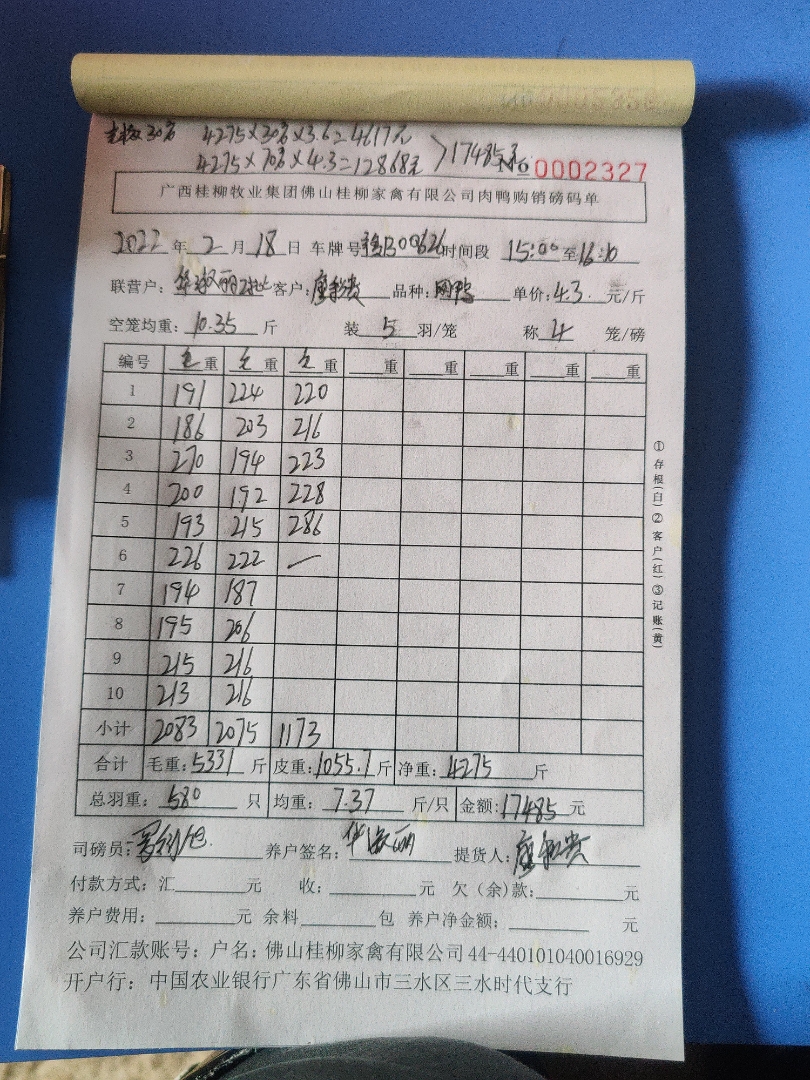 30% 4275×30%×3.6=4617元
4275×70%×4.3=12868元 >17485元
№ 0002327
广西桂柳牧业集团佛山桂柳家禽有限公司肉鸭购销磅码单
2022年2月18日 车牌号 B00626 时间段 15:00至16:10
联营户: 客户: 品种: 单价:4.3元/斤
空笼均重:10.35斤 装5羽/笼 称4笼/磅
编号 毛重 毛重 毛重 重 重 重 重 重
1 191 224 220
2 186 203 216
3 270 194 223
4 200 192 228
5 193 215 286
6 226 222 —
7 194 187
8 195 206
9 215 216
10 213 216
小计 2083 2075 1173
合计 毛重:5331斤 皮重:1055.7斤 净重:4275斤
总羽重:580只 均重:7.37斤/只 金额:17485元
司磅员: 养户签名: 提货人:
付款方式:汇 元 收: 元 欠(余)款: 元
养户费用: 元 余料 包 养户净金额: 元
公司汇款账号:户名:佛山桂柳家禽有限公司44-440101040016929
开户行:中国农业银行广东省佛山市三水区三水时代支行
①存根(白)②客户(红)③记账(黄)